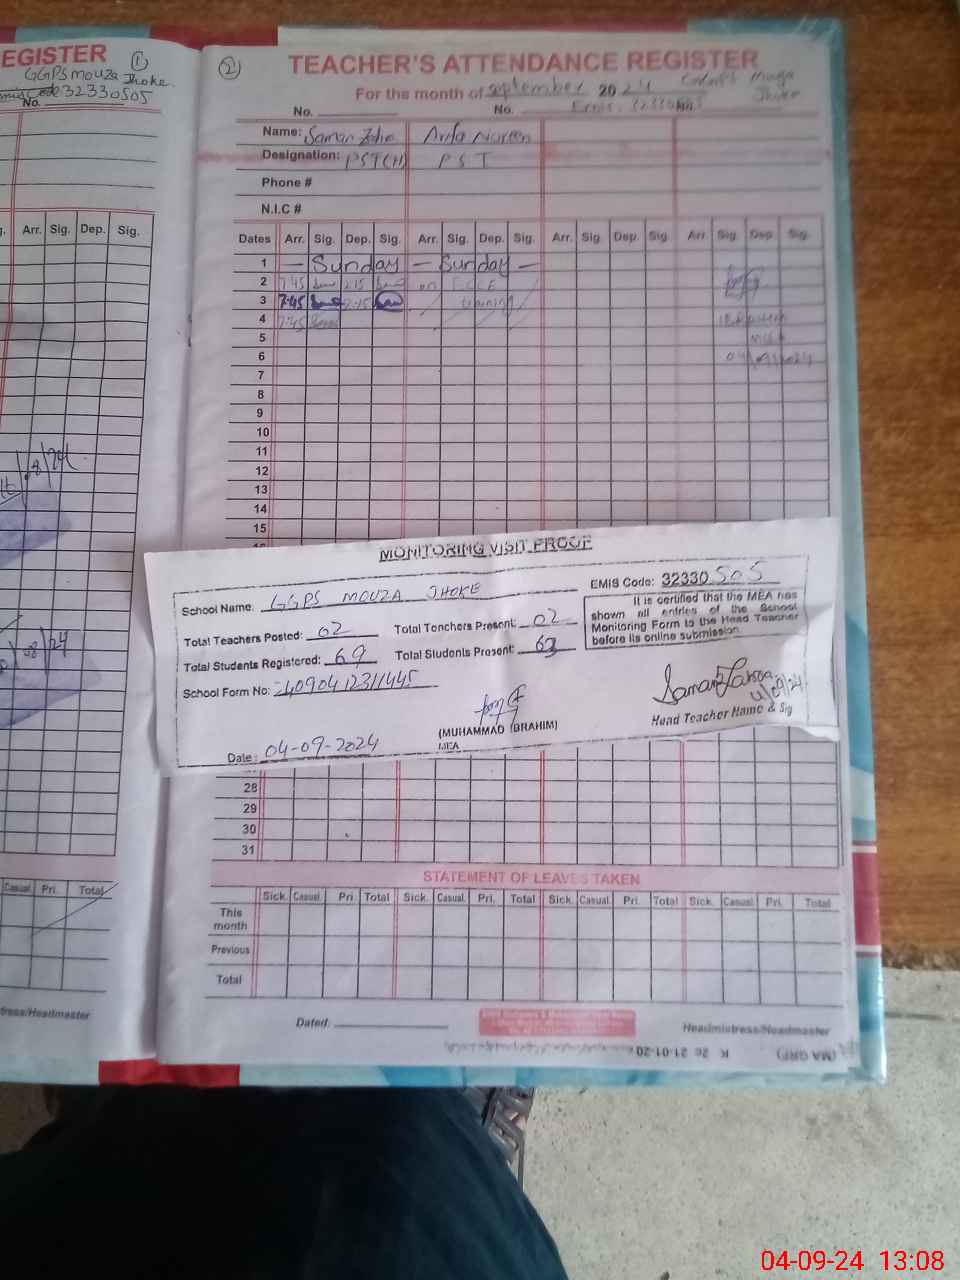 EGISTER 1
GGPS mouza Jhoke.
Emis Code 32330505
No.
Arr. Sig. Dep. Sig.
Casual. Pri. Total
tress/Headmaster
2 TEACHER'S ATTENDANCE REGISTER
For the month of september 2024
No. No.
Name: Saman Arifa Noreen
Designation: PST(H) PST
Phone #
N.I.C #
Dates Arr. Sig. Dep. Sig. Arr. Sig. Dep. Sig. Arr. Sig. Dep. Sig. Arr. Sig. Dep. Sig.
1 — Sunday — Sunday —
2 7:45 2:15 on ECCE
3 7:45 2:15 training
4 7:45 IBRAHIM
5 MEA
6 04/09/2024
7
8
9
10
11
12
13
14
15
MONITORING VISIT PROOF
School Name: GGPS MOUZA JHOKE EMIS Code: 32330505
Total Teachers Posted: 02 Total Teachers Present: 02
Total Students Registered: 69 Total Students Present: 63
It is certified that the MEA has
shown all entries of the School
Monitoring Form to the Head Teacher
before its online submission.
School Form No:
(MUHAMMAD IBRAHIM)
MEA
Head Teacher Name & Sig
Date: 04-09-2024
28
29
30
31
STATEMENT OF LEAVES TAKEN
Sick. Casual. Pri. Total Sick. Casual. Pri. Total Sick. Casual. Pri. Total Sick. Casual. Pri. Total
This month
Previous
Total
Dated:
Headmistress/Headmaster
04-09-24 13:08